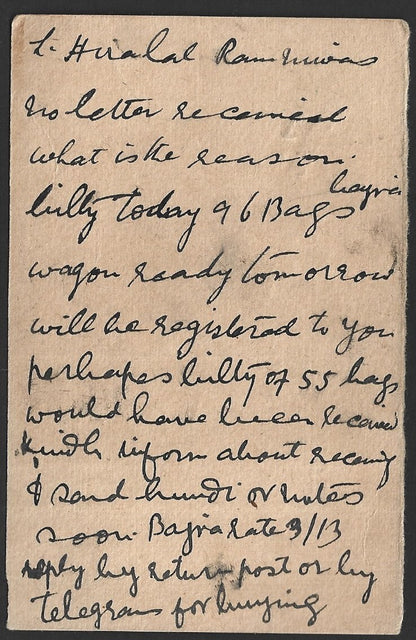 L. Hiralal Ramniwas
no letter received
what is the reason.
bajra
bilty today 96 Bags
wagon ready tomorrow
will be registered to you
perhapes bilty of 55 bags
would have been received
kindly inform about receving
& sand hundi or notes
soon. Bajra rate 3/13
reply by return post or by
telegram for buying